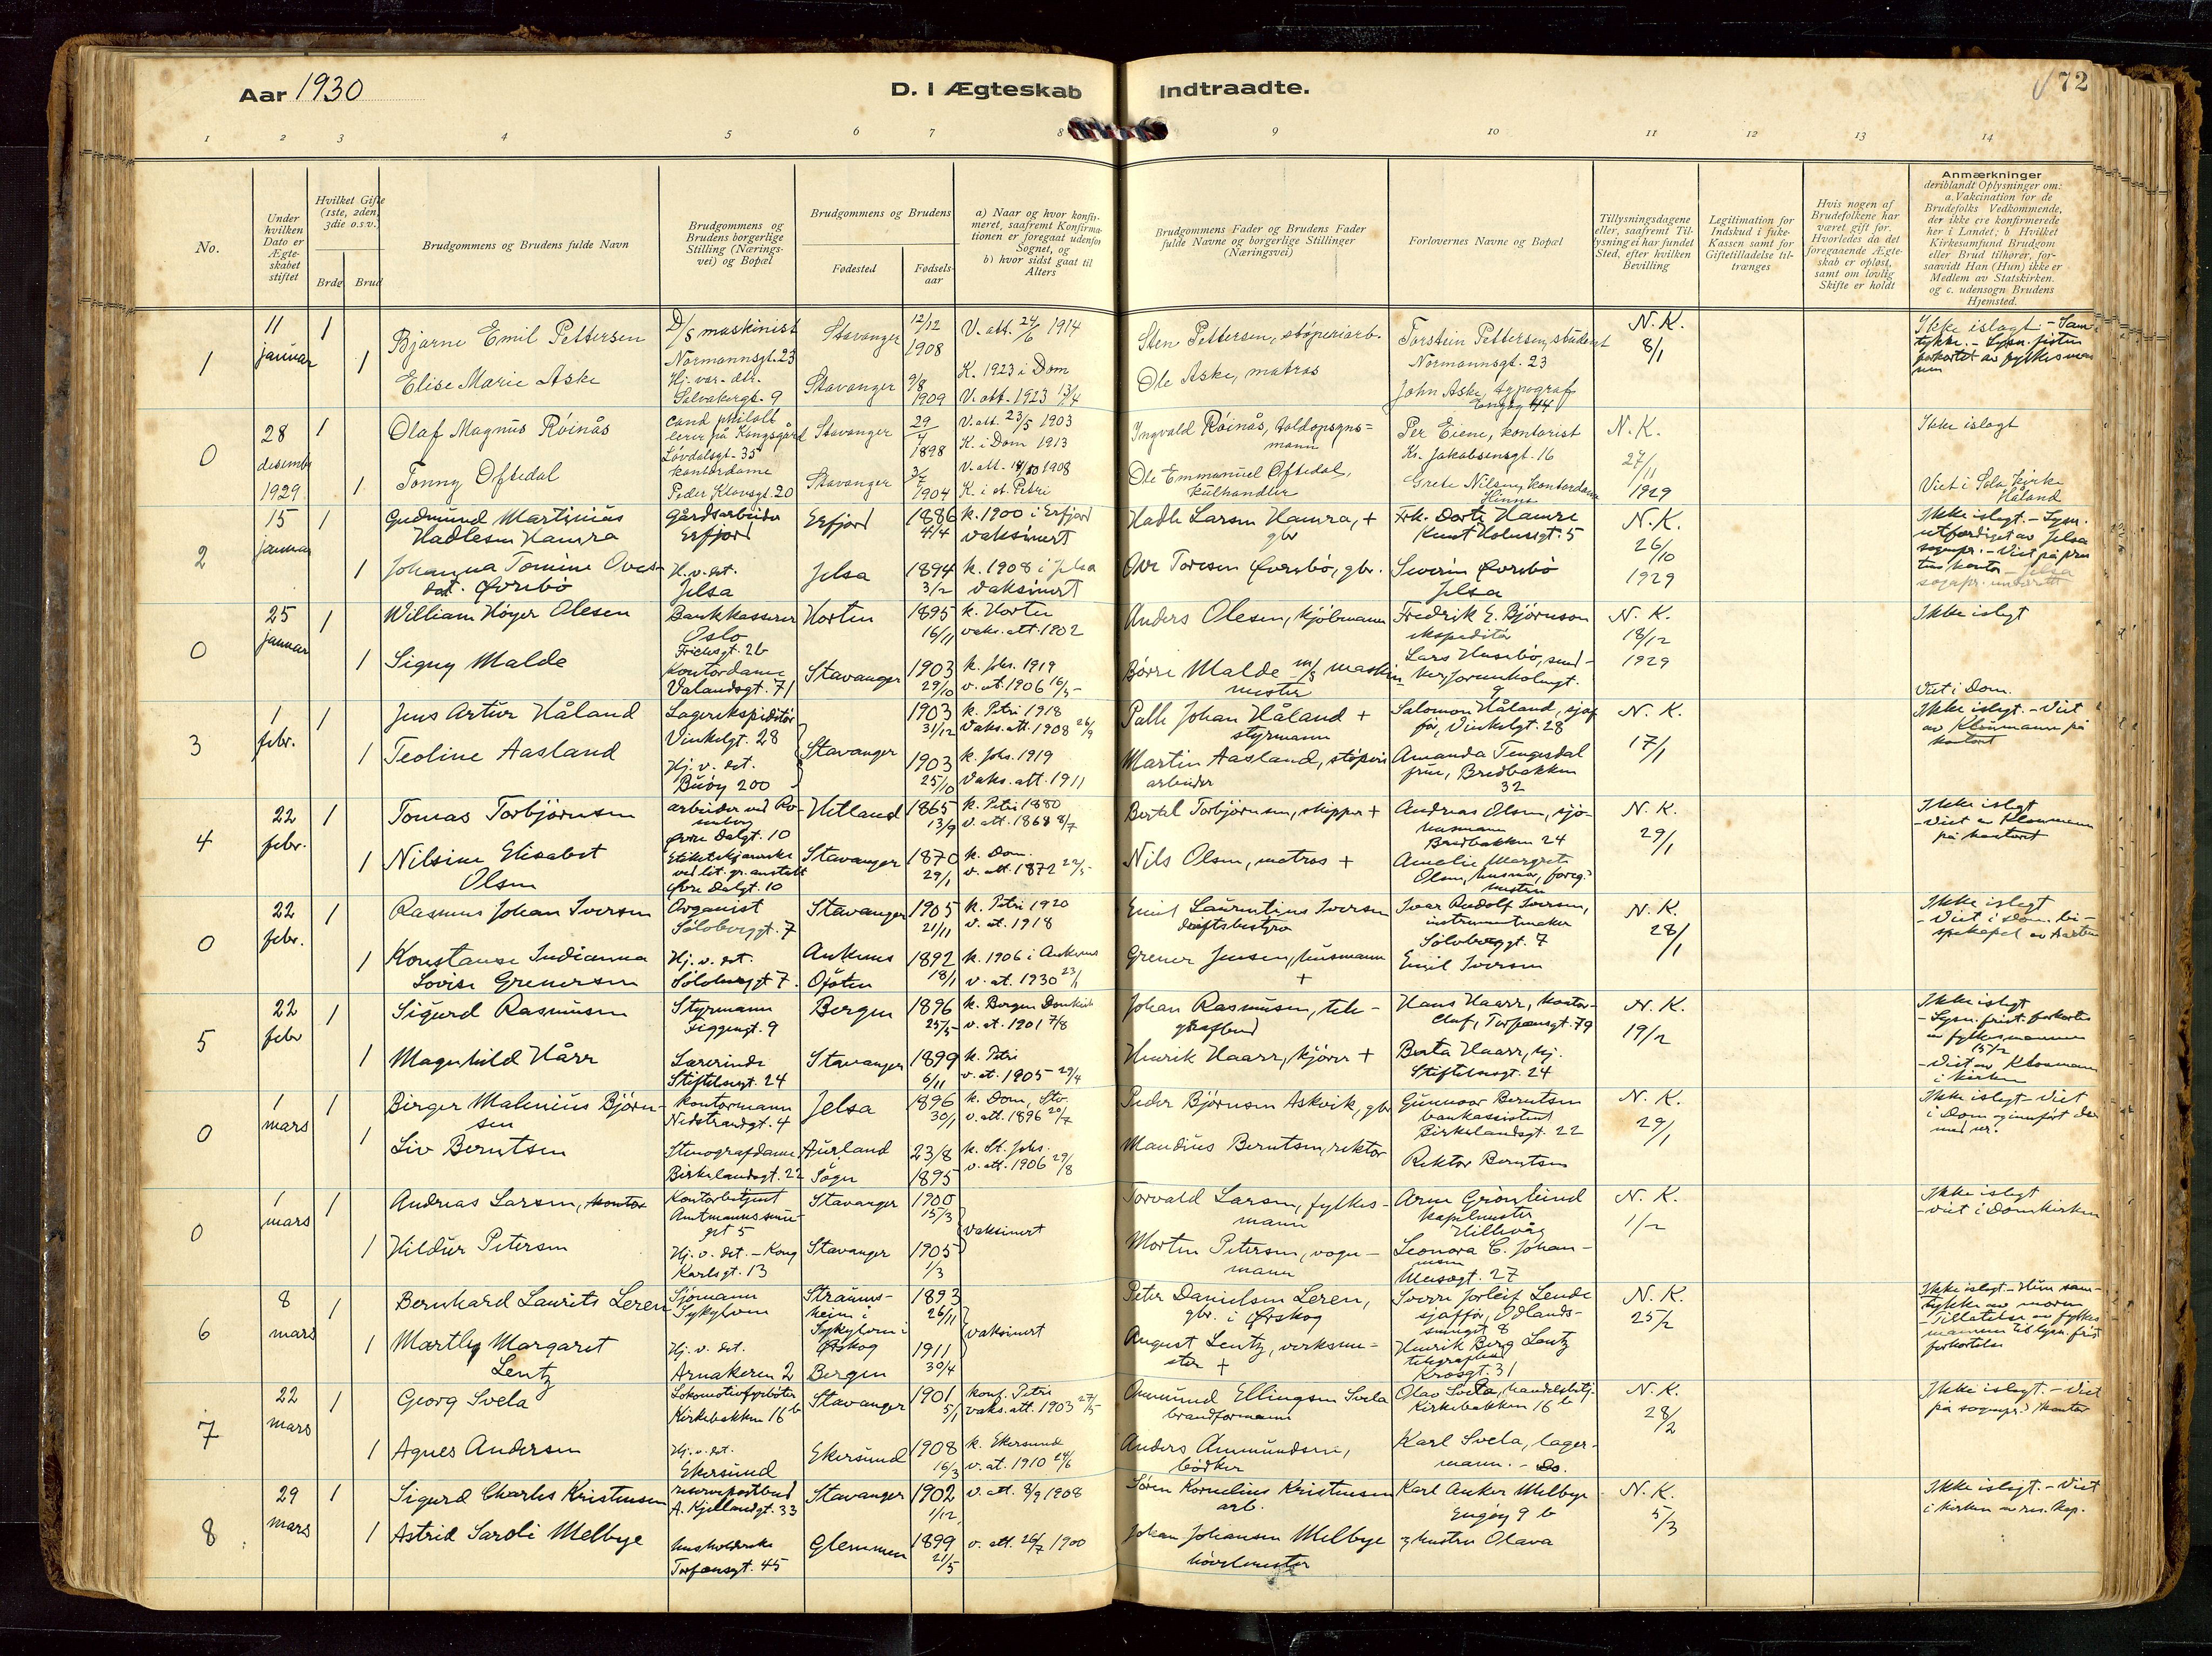 Aar 1930
D. I Ægteskab Indtraadte.
72
1 2 3 4 5 6 7 8 9 10 11 12 13 14
No.
Under hvilken Dato er Ægteskabet stiftet
Hvilket Gifte (1ste, 2den, 3die o.s.v.)
Brdg. Brud
Brudgommens og Brudens fulde Navn
Brudgommens og Brudens borgerlige Stilling (Næringsvei) og Bopæl
Brudgommens og Brudens
Fødested
Fødselsaar
a) Naar og hvor konfirmeret, saafremt Konfirmationen er foregaat udenfor Sognet, og
b) hvor sidst gaat til Alters
Brudgommens Fader og Brudens Fader fulde Navne og borgerlige Stillinger (Næringsvei)
Forlovernes Navne og Bopæl
Tillysningsdagene eller, saafremt Tillysning ei har fundet Sted, efter hvilken Bevilling
Legitimation for Indskud i fuke-Kassen samt for Giftetilladelse tiltrænges
Hvis nogen af Brudefolkene har været gift før. Hvorledes da det foregaaende Ægteskab er opløst, samt om lovlig Skifte er holdt
Anmærkninger
deriblandt Oplysninger om: a. Vakcination for de Brudefolks Vedkommende, der ikke ere konfirmerede her i Landet; b. Hvilket Kirkesamfund Brudgom eller Brud tilhører, forsaavidt Han (Hun) ikke er Medlem av Statskirken. og c. udensogn Brudens Hjemsted.
1
11 januar
1
Bjarne Emil Pettersen
D/S maskinist
Normannsgt. 23
Stavanger
12/12 1908
V. att. 24/6 1914
Sten Pettersen, støperiarb.
Torstein Pettersen, student
Normannsgt. 23
N.K.
8/1
Ikke i slegt
1
Elise Marie Aske
Stavanger
9/8 1909
K. 1923 i Dom
V. att. 1923 13/4
Ole Aske, matros
John Aske, typograf
0
28 desembr 1929
1
Olaf Magnus Röinås
Lövdalsgt. 35
Stavanger
1898
V. att. 23/5 1903
K. i Dom 1913
Ingvald Röinås, toldopsynsmann
Per Eiene, kontorist
Kr. Jakobsensgt. 16
N.K.
27/11 1929
Ikke i slegt
Viet i Sola kirke
Håland
1
Tonny Oftedal
kontordame
Peder Klowsgt. 20
Stavanger
3/7 1904
K. i st. Petri
Ole Emmanuel Oftedal,
kulhandler
Grete Nilsen, kontordame
Hinna
2
15 januar
1
Gudmund Martinius
Hadlesen Hamra
Gårdsarbeider
Erfjord
Erfjord
1886 4/4
k. 1900 i Erfjord
vaksinert
Hadle Larsen Hamra, +
gbr
Frk. Dorte Hamre
N.K.
26/10 1929
1
Johanna Tomine Oves
dat. Øvrebö
H. v. det.
Jelsa
Jelsa
1894 3/2
k. 1908 i Jelsa
vaksinert
Ove Toresen Øvrebö, gbr.
Severin Øvrebö
Jelsa
0
25 januar
1
William Höyer Olesen
Bankkasserer
Oslo
Horten
1895 16/11
k. Horten
vaks. att. 1902
Anders Olesen, kjöbmann
Fredrik E. Björnson
ekspeditör
N. K.
18/12 1929
Ikke i slegt
Viet i Dom.
1
Signy Malde
Kontordame
Valandsgt. 71
Stavanger
1903 29/10
k. Johs. 1919
v. at. 1906 16/5
Börre Malde m/s maskin
mester
3
1 febr.
1
Jens Artur Håland
Lagerekspeditör
Vinkelgt. 28
Stavanger
1903 31/12
k. Petri 1918
Vaks. att. 1908 26/9
Palle Johan Håland +
styrmann
Salomon Håland, sjaf
för, Vinkelgt. 28
N. K.
17/1
Ikke i slegt. - Viet
av Klaumann på
kontoret
1
Teoline Aasland
Hj. v. det.
Buöy 200
1903 25/10
k. Johs. 1919
Vaks. att. 1911
Martin Aasland, stöperi
arbeider
Amanda Tengesdal
frue, Bredbakken
32
4
22 febr.
1
Tomas Torbjörnsen
arbeider ved Ro-
senberg
Övre Dalgt. 10
Hetland
1865 13/9
k. Petri 1880
v. att. 1868 8/7
Bertel Torbjörnsen, skipper +
Andreas Olsen, sjö-
Bredbakken 24
N. K.
29/1
Ikke i slegt
1
Nilsine Elisabet
Olsen
Övre Dalgt. 10
Stavanger
1870 29/1
k. Dom.
v. att. 1872 22/5
Nils Olsen, matros +
Amalie Margrete
0
22 febr.
1
Rasmus Johan Iversen
Organist
Sölvberggt. 7
Stavanger
1905 21/11
k. Petri 1920
v. at. 1918
Emil Laurentius Iversen
driftsbestyrer
Ivar Rudolf Iversen,
instrumentmaker
Sölvberggt. 7
N. K.
28/1
Ikke i slegt
1
Konstanse Indianna
Lovise Grenersen
Hj. v. det.
Sölvberggt 7.
Ankenes
Ofoten
1892 18/1
k. 1906 i Ankenes
v. at. 1930 23/1
Grener Jensen, husmann
+
Emil Iversen
5
22 febr
1
Sigurd Rasmussen
Styrmann
Figgengt. 9
Bergen
1896 25/5
k. Bergen Domkirk
v. at. 1901 7/8
Johan Rasmussen, tele-
grafbud
Hans Haarr, kontor-
chef, Torfæusgt. 79
N. K.
19/2
Ikke i slegt
1
Magnhild Hårr
Lærerinde
Stiftelsesgt. 24
Stavanger
1899 6/11
k. Petri
v. at. 1905 29/4
Henrik Haarr, kjörer +
Berta Haarr, hj.
Stiftelsesgt. 24
0
1 mars
1
Birger Malenius Björn-
sen
Kontormann
Nedstrandgt. 4
Jelsa
1896 30/1
k. Dom, Stv.
v. att. 1896 20/7
Peder Björnsen Askvik, gbr
Gunnvor Berntsen
bankassistent
Birkelandsgt. 22
N. K.
29/1
Ikke i slegt - Viet
i Dom og innfört der
med nr.
1
Liv Berntsen
Stenografdame
Birkelandsgt. 22
Aurland
Sogn
23/8 1895
k. St. Johs.
v. att. 1906 29/8
Mandius Berntsen, rektor
Rektor Berntsen
0
1 mars
1
Andreas Larsen, kontor
Kontorbetjent
Stavanger
1900 15/3
vaksinert
Torvald Larsen, fylkes-
mann
Arne Grönlund
kapelmester
Hillevåg
N. K.
1/2
Ikke i slegt
- viet i Domkirken
1
Hildur Petersen
Hj. v. det. - Kong
Karlsgt. 13
Stavanger
1905 1/3
Morten Petersen, vogn-
mann
Leonora C. Johan-
nesen
6
8 mars
1
Bernhard Laurits Leren
Sjömann
Sykylven
Straums-
heim i
Sykylven i
Örskog
1893 26/11
vaksinert
Peter Danielsen Leren,
gbr. i Ørskog
Sverre Jorleif Lende
sjaffør
N. K.
25/2
1
Martly Margaret
Lentz
Hj. v. det.
Arnakeren 2
Bergen
1911 30/4
August Lentz, verksme-
ster +
Henrik Berg Lentz
telegrafbud
Krosgt. 31
7
22 mars
1
Georg Svela
Lokomotivfyrböter
Kirkebakken 16 b
Stavanger
1901 5/1
konf. Petri
vaks. att. 1903 27/5
Ommund Ellingsen Svela
brandformann
Olav Svela, handelsbetj.
Kirkebakken 16 b
N. K.
28/2
Ikke i slegt. - Viet
på sognepr.s kontor
1
Agnes Andersen
Hj. v. det.
Ekersund
Ekersund
1908 16/3
k. Ekersund
v. at. 1910 24/6
Anders Ommundsen,
bödker
Karl Svela, lager-
mann. - Do.
8
29 mars
1
Sigurd Charles Kristensen
reservepostbud
A. Kjellandgt. 33
Stavanger
1902 1/12
v. att. 8/9 1908
Sören Kornelius Kristensen
arb.
Karl Anker Melbye
Engöy 9 b
N. K.
5/3
Ikke i slegt. - Viet
i kirken av res. kap.
1
Astrid Saroli Melbye
husholderske
Torfæusgt. 45
Glemmen
1899 21/5
v. att. 26/7 1900
Johan Johansen Melbye
hövelmester
og hustru Olava